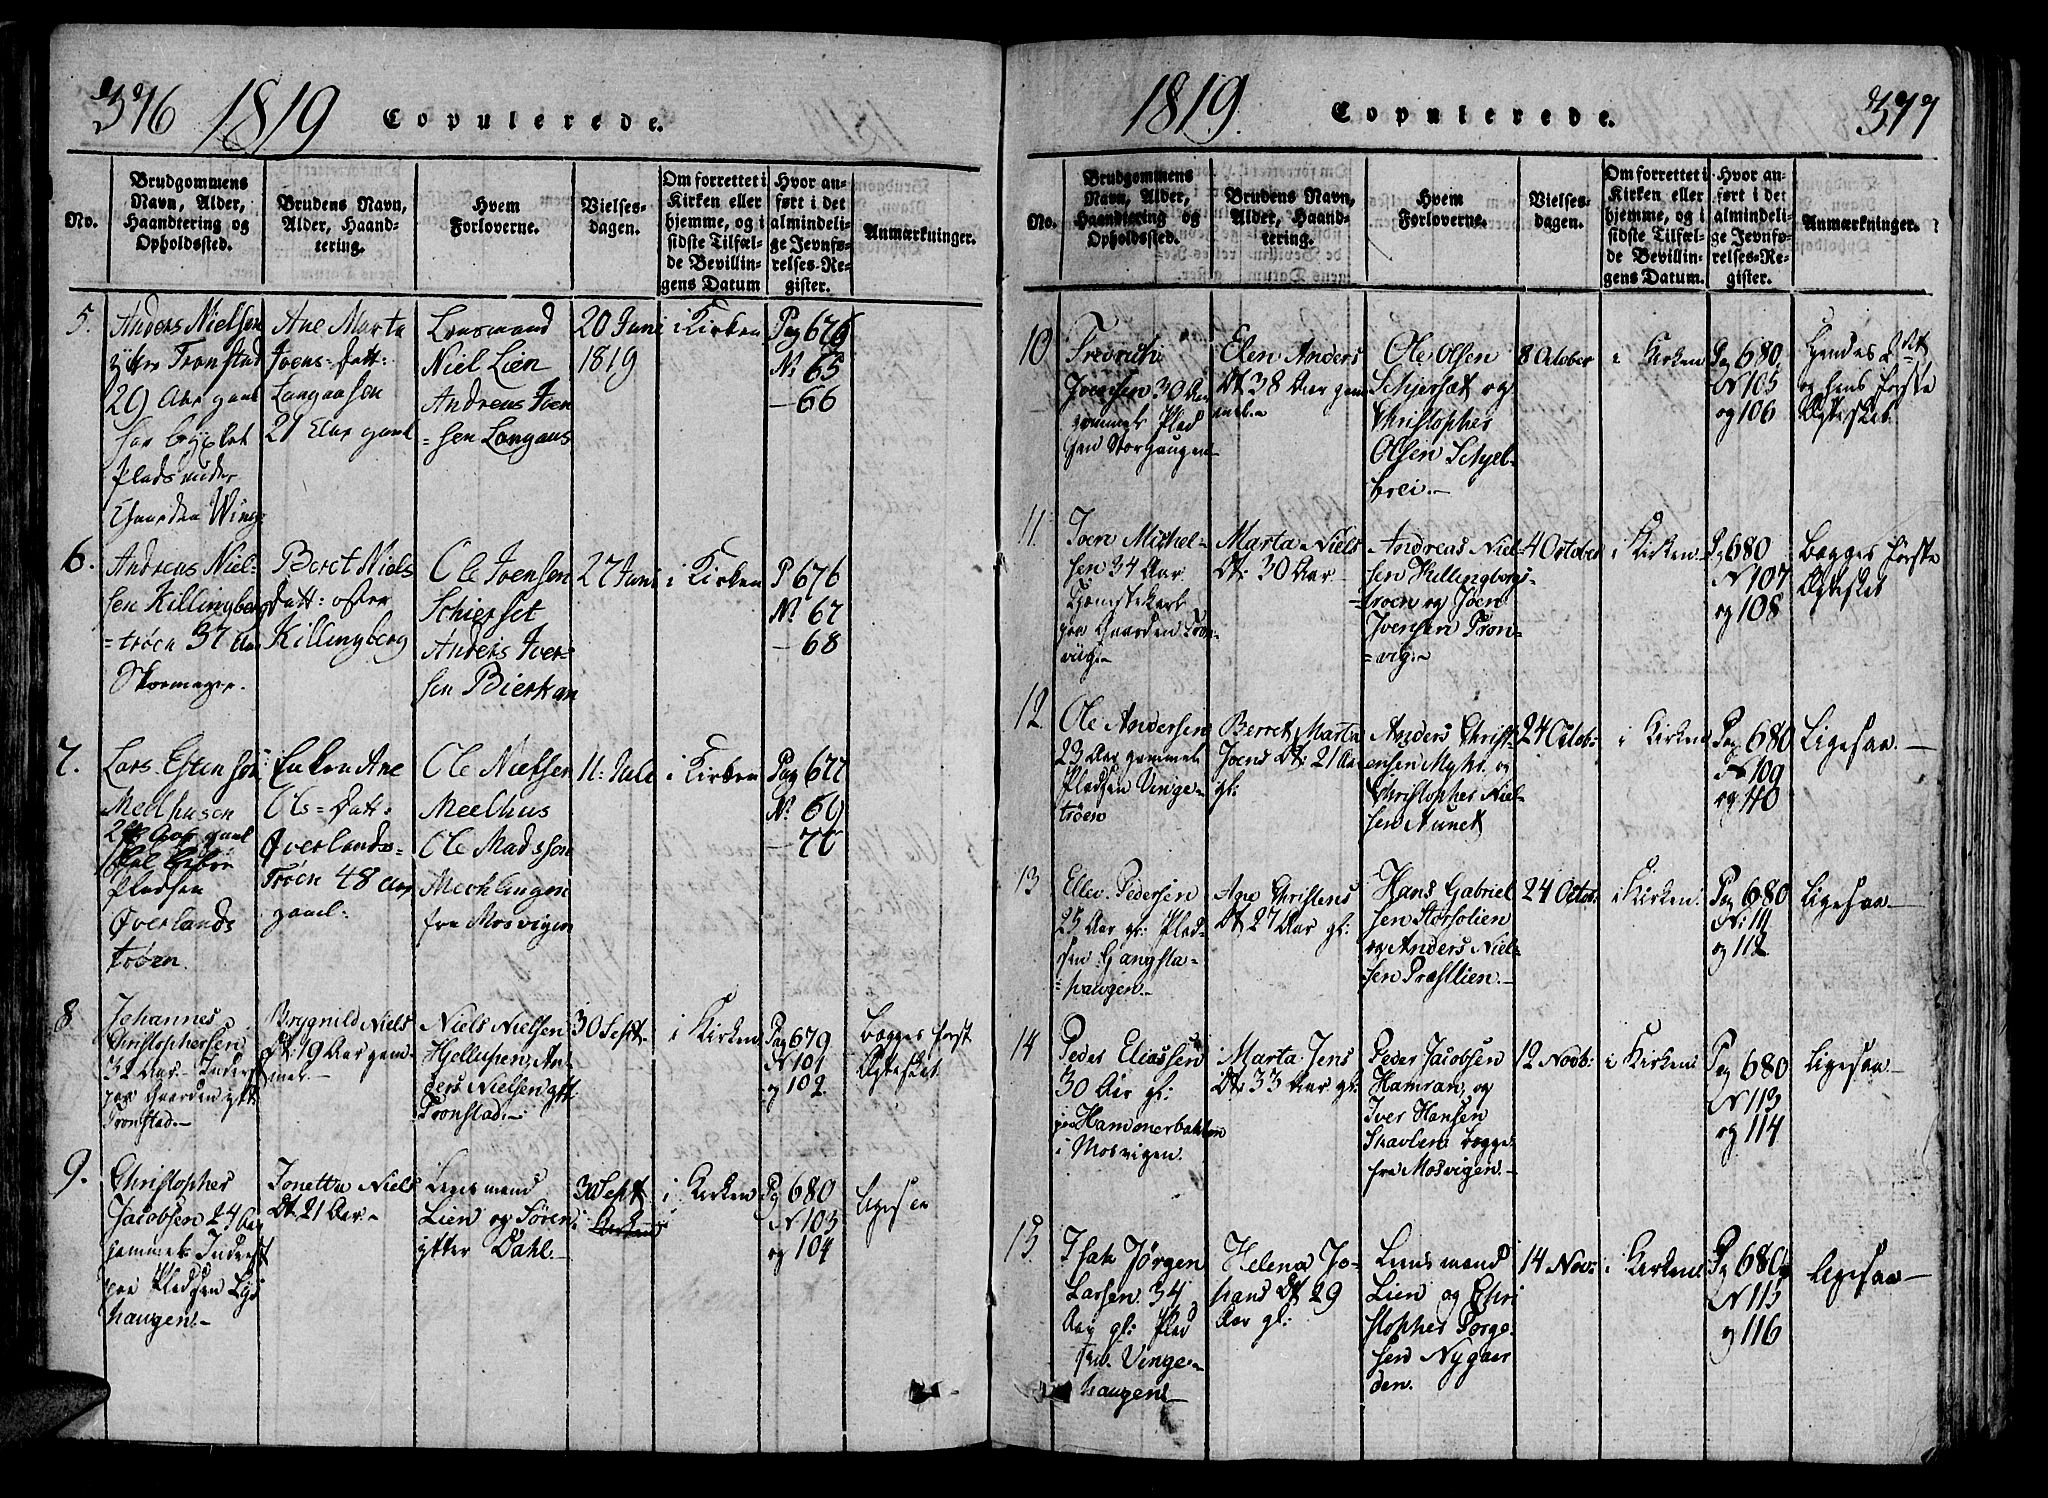 376 1819 Copulerede.
No.
Brudgommens
Navn, Alder,
Haandtering og
Opholdssted.
Brudens Navn,
Alder, Haand-
tering.
Hvem
Forloverne.
Vielses-
dagen.
Om forrettet i
Kirken eller
hjemme, og i
sidste Tilfæl-
de Bevillin-
gens Datum
Hvor an-
ført i det
almindeli-
ge Jevnfø-
relses-Re-
gister.
Anmærkninger.
5.
Anders Nielsen
Tronstad
29 Aar
Plads under
Gaarden Wing
Ane Marta
Joens-Datt:
Langaasen
21 Aar gaml
Lensmand
Niel Lien
Andreas Joen
=sen Langaas
20 Juni
1819
i Kirken
Pag 676
No 65
—66
6.
Andreas Niel=
sen Killingberg
=trøen 37 Aar
Skoemager.
Beret Niels
Datt:
Killingberg
Ole Joensen
Schierset
Anders Iver=
sen Bierkan
27 Juni
i Kirken
P 676
No 67
—68
7.
Lars Estensøn
Melhusen
Pladsen
Øverlands
trøen.
Ane
Ols=Datt:
Øverlands=
Trøen 48 Aar
gaml:
Ole Nielsen
Meelhus
Ole Madssøn
fra Mosvigen
11: Juli
i Kirken
Pag 677
No 69
8
Johannes
Christophersen
32 Aar
paa Gaarden ytt:
Tronstad.—
Brygnild Niels
Dt: 19 Aar gam-
mel.—
Niels Nielsen
Hjellupen, An-
ders Nielsen ytt
Tronstad.—
30 Sept.
i Kirken
Pag 679
N 101
og 102.
Begges først
Ægteskab
9.
Christopher
Jacobsen 24 Aar
gammel
paa Pladsen
haugen.—
Jonetta Niels
Dt. 21 Aar.—
Lensmand
Lien og Søren
ytter Dahl.—
30 Sept
i Kirken
Pg 680
N 103
og 104
Ligesaa
1819. Copulerede. 377
No.
Brudgommens
Navn, Alder,
Haandtering og
Opholdssted.
Brudens Navn,
Alder, Haand-
tering.
Hvem
Forloverne.
Vielses-
dagen.
Om forrettet i
Kirken eller
hjemme, og i
sidste Tilfæl-
de Bevillin-
gens Datum.
Hvor an-
ført i det
almindeli-
ge Jevnfø-
relses-Re-
gister.
Anmærkninger.
10
Fredrich
Joensen 30 Aar
gammel Plad
sen Storhaugen—
Elen Anders
Dt 38 Aar gam
mel.—
Ole Olsen
Schjerset og
Christopher
Olsen Schjel-
brei.—
8 October
i Kirken
Pg 680
N 105
og 106
Hendes 2det
og hans første
Ægteskab
11.
Joen Michel-
sen 34 Aar
paa Gaarden Tron-
viig.—
Marta Niels
Dt: 30 Aar
Andreas Niel-
sen Killingbergs-
=troen og Joen
Iversen Tron-
=vig.—
4 October
i Kirken
Pg 680
N 107
og 108
Begges første
Ægteskab
12
Ole Andersen
23 Aar gammel
Pladsen Vinge-
trøen
Berret Marta
Joens Dt: 21 Aar
gl:
Anders Christ-
ensen Myhr og
Christopher Niel-
sen Aunet
24 Octob:
i Kirken
Pag 680
N 109
og
Ligesaa.—
13
Ellev Pedersen
25 Aar gl: Plad-
sen Gangsta-
=haugen.—
Ane Christens
Dt 27 Aar gl:
Hans Gabriel
sen Storsolien
og Anders Niel-
sen Præstlien.—
24 Octob:
i Kirken.
Pag 680
N: 111
og 112
Ligesaa.—
14
Peder Eliassen
30 Aar gl:
paa Hammerbakken
i Mosvigen.
Marta Jens
Dt: 33 Aar gl:
Peder Jacobsen
Hamran, og
Iver Hansen
Skavlen begge
fra Mosvigen.—
12 Novb:
i Kirken
Pag 680
N 113
og 114
Ligesaa.—
15
Isak Jørgen
Larsen 34
Aar gl: Plad
sen. Vinge-
haugen.—
Helena Jo-
hans Dt 29
Aar gl:
Lensmand
Lien og Chri
stopher Torge-
sen Nygaar
den.
14 Nov:
i Kirken
Pg 680
N 115
og 116
Ligesaa—